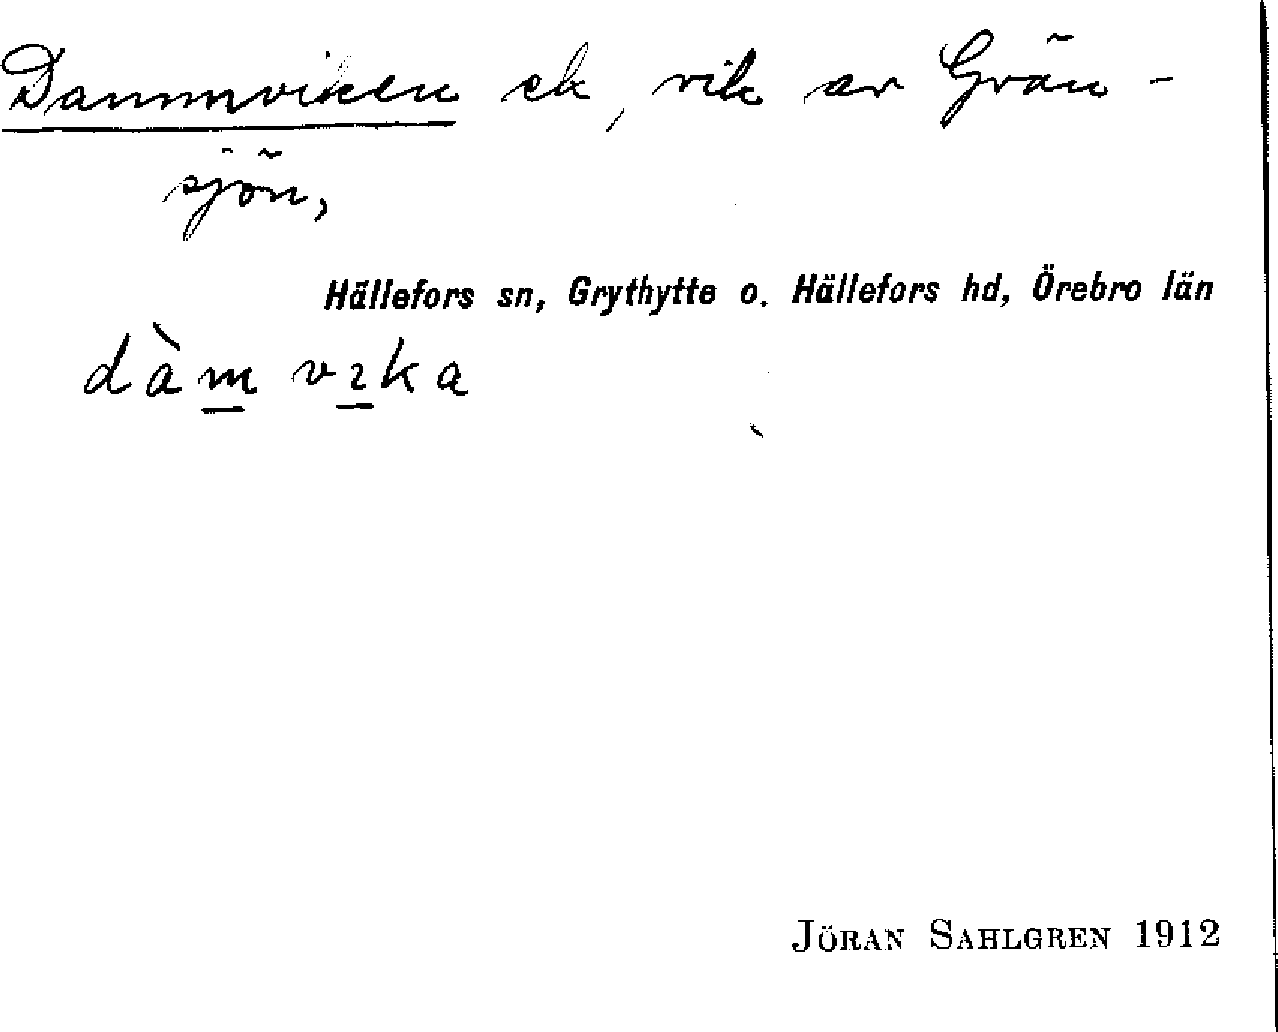 Dammviken ek, vik av Grän-
sjön,
Hällefors sn, Grythytte o. Hällefors hd, Örebro län
dàm vıka
JÖRAN SAHLGREN 1912